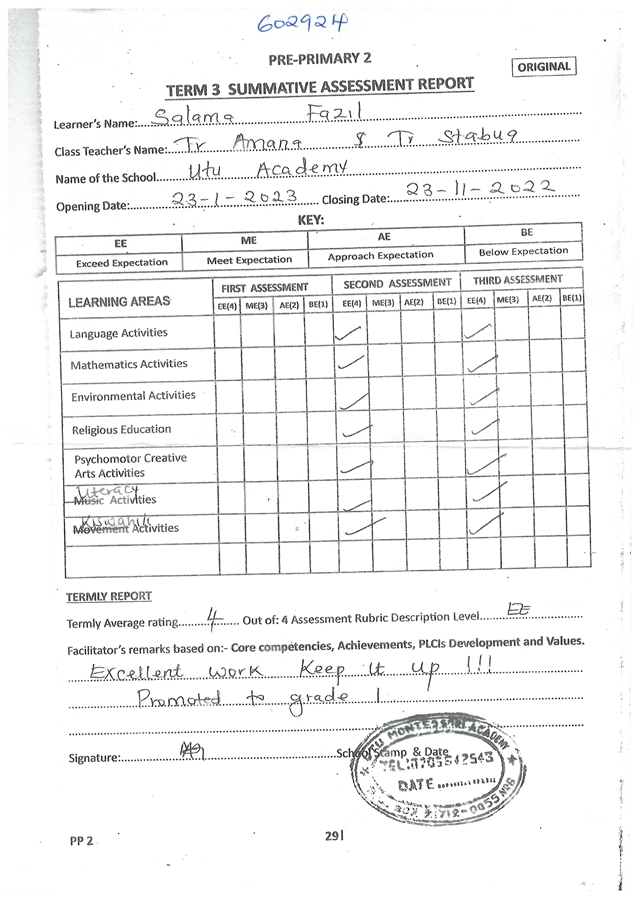 602924
PRE-PRIMARY 2
ORIGINAL
TERM 3 SUMMATIVE ASSESSMENT REPORT
Learner's Name: Salama Fazil
Class Teacher's Name: Tr Amana & Tr Stabua
Name of the School Utu Academy
Opening Date: 23-1-2023 Closing Date: 23-11-2022
KEY:
EE ME AE BE
Exceed Expectation Meet Expectation Approach Expectation Below Expectation
LEARNING AREAS FIRST ASSESSMENT SECOND ASSESSMENT THIRD ASSESSMENT
EE(4) ME(3) AE(2) BE(1) EE(4) ME(3) AE(2) BE(1) EE(4) ME(3) AE(2) BE(1)
Language Activities ✓ ✓
Mathematics Activities ✓ ✓
Environmental Activities ✓ ✓
Religious Education ✓ ✓
Psychomotor Creative
Arts Activities ✓ ✓
Literacy
Music Activities ✓ ✓
Kiswahili
Movement Activities ✓ ✓
TERMLY REPORT
Termly Average rating 4 Out of: 4 Assessment Rubric Description Level EE
Facilitator's remarks based on:- Core competencies, Achievements, PLCIs Development and Values.
Excellent work Keep it up !!!
Promoted to grade 1
Signature: School Stamp & Date
UTU MONTESSORI ACADEMY
TEL: 0705542543
DATE
BOX 21712-00
PP 2
291